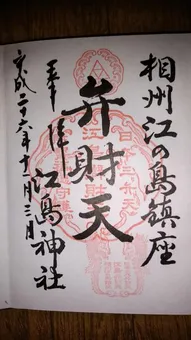 相州江の島鎮座
弁財天
奉拝
江島神社
平成二十六年十一月三日